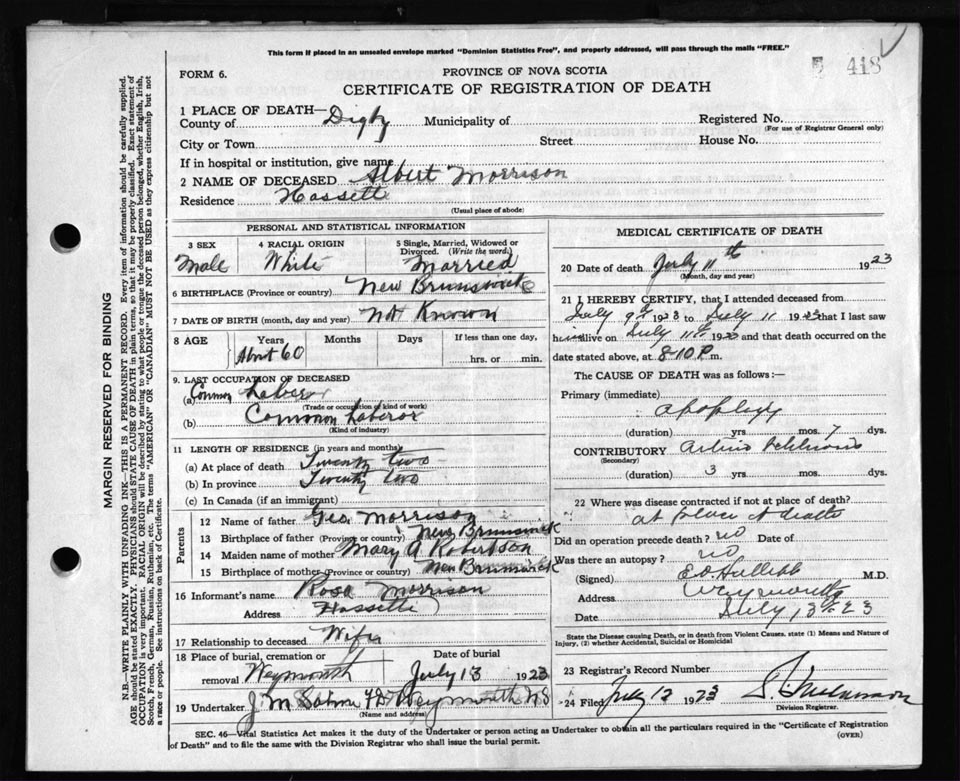 This form if placed in an unsealed envelope marked "Dominion Statistics Free", and properly addressed, will pass through the mails "FREE."
FORM 6.
PROVINCE OF NOVA SCOTIA
418
CERTIFICATE OF REGISTRATION OF DEATH
1 PLACE OF DEATH—
County of Digby Municipality of Registered No.
(For use of Registrar General only)
City or Town Street House No.
If in hospital or institution, give name
2 NAME OF DECEASED Albert Morrison
Residence Hassett
(Usual place of abode)
PERSONAL AND STATISTICAL INFORMATION
3 SEX 4 RACIAL ORIGIN 5 Single, Married, Widowed or Divorced. (Write the word.)
Male White Married
6 BIRTHPLACE (Province or country) New Brunswick
7 DATE OF BIRTH (month, day and year) Not Known
8 AGE Years Months Days If less than one day,
About 60 hrs. or min.
9. LAST OCCUPATION OF DECEASED
(a) Common Laberor
(Trade or occupation of kind of work)
(b) Common Laberor
(Kind of industry)
11 LENGTH OF RESIDENCE (in years and months)
(a) At place of death Twenty two
(b) In province Twenty two
(c) In Canada (if an immigrant)
Parents
12 Name of father Geo Morrison
13 Birthplace of father (Province or country) New Brunswick
14 Maiden name of mother Mary A Robertson
15 Birthplace of mother (Province or country) New Brunswick
16 Informant's name Rosa Morrison
Address Hassett
17 Relationship to deceased Wife
18 Place of burial, cremation or removal Date of burial
Weymouth July 13 1923
19 Undertaker J. M. Weymouth N S
(Name and address)
MEDICAL CERTIFICATE OF DEATH
20 Date of death July 11th 1923
(Month, day and year)
21 I HEREBY CERTIFY, that I attended deceased from
July 9th 1923 to July 11 1923 that I last saw
him alive on July 11th 1923 and that death occurred on
date stated above, at 8.10 P. m.
The CAUSE OF DEATH was as follows:—
Primary (immediate)
apoplexy
(duration) yrs. mos. 7 dys.
CONTRIBUTORY
(Secondary)
(duration) 3 yrs. mos. dys.
22 Where was disease contracted if not at place of death?
at place of death
Did an operation precede death? no Date of
Was there an autopsy? no
(Signed) M.D.
Address Weymouth
Date July 13th 23
State the Disease causing Death, or in death from Violent Causes, state (1) Means and Nature of Injury, (2) whether Accidental, Suicidal or Homicidal
23 Registrar's Record Number
24 Filed July 12 1923
Division Registrar.
SEC. 46—Vital Statistics Act makes it the duty of the Undertaker or person acting as Undertaker to obtain all the particulars required in the "Certificate of Registration of Death" and to file the same with the Division Registrar who shall issue the burial permit.
(OVER)
MARGIN RESERVED FOR BINDING
N.B.—WRITE PLAINLY WITH UNFADING INK—THIS IS A PERMANENT RECORD. Every item of information should be carefully supplied.
AGE should be stated EXACTLY. PHYSICIANS should STATE CAUSE OF DEATH in plain terms, so that it may be properly classified. Exact statement of
OCCUPATION is very important. RACIAL ORIGIN will be described by stating to what people or tongue the deceased person belonged, whether English, Irish,
Scotch, French, German, Russian, Ruthenian, etc. The terms "AMERICAN" or "CANADIAN" MUST NOT BE USED as they express citizenship but not
a race or people. See instructions on back of Certificate.